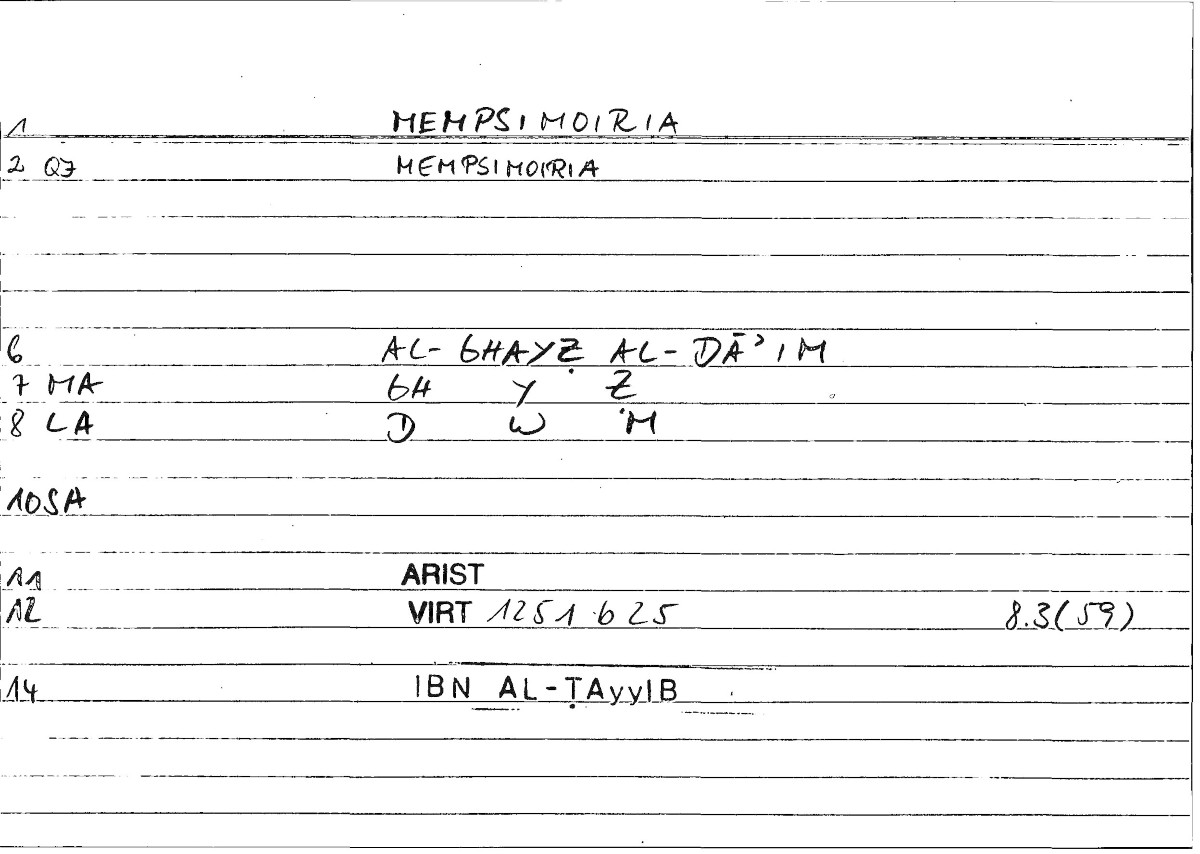 1 MEMPSIMOIRIA
2 QZ MEMPSIMOIRIA
6 AL-GHAYẒ AL-DĀʾIM
7 MA GH Y Ẓ
8 LA D W M
10 SA
11 ARIST
12 VIRT 1251 b 25 8.3(59)
14 IBN AL-ṬAyyIB